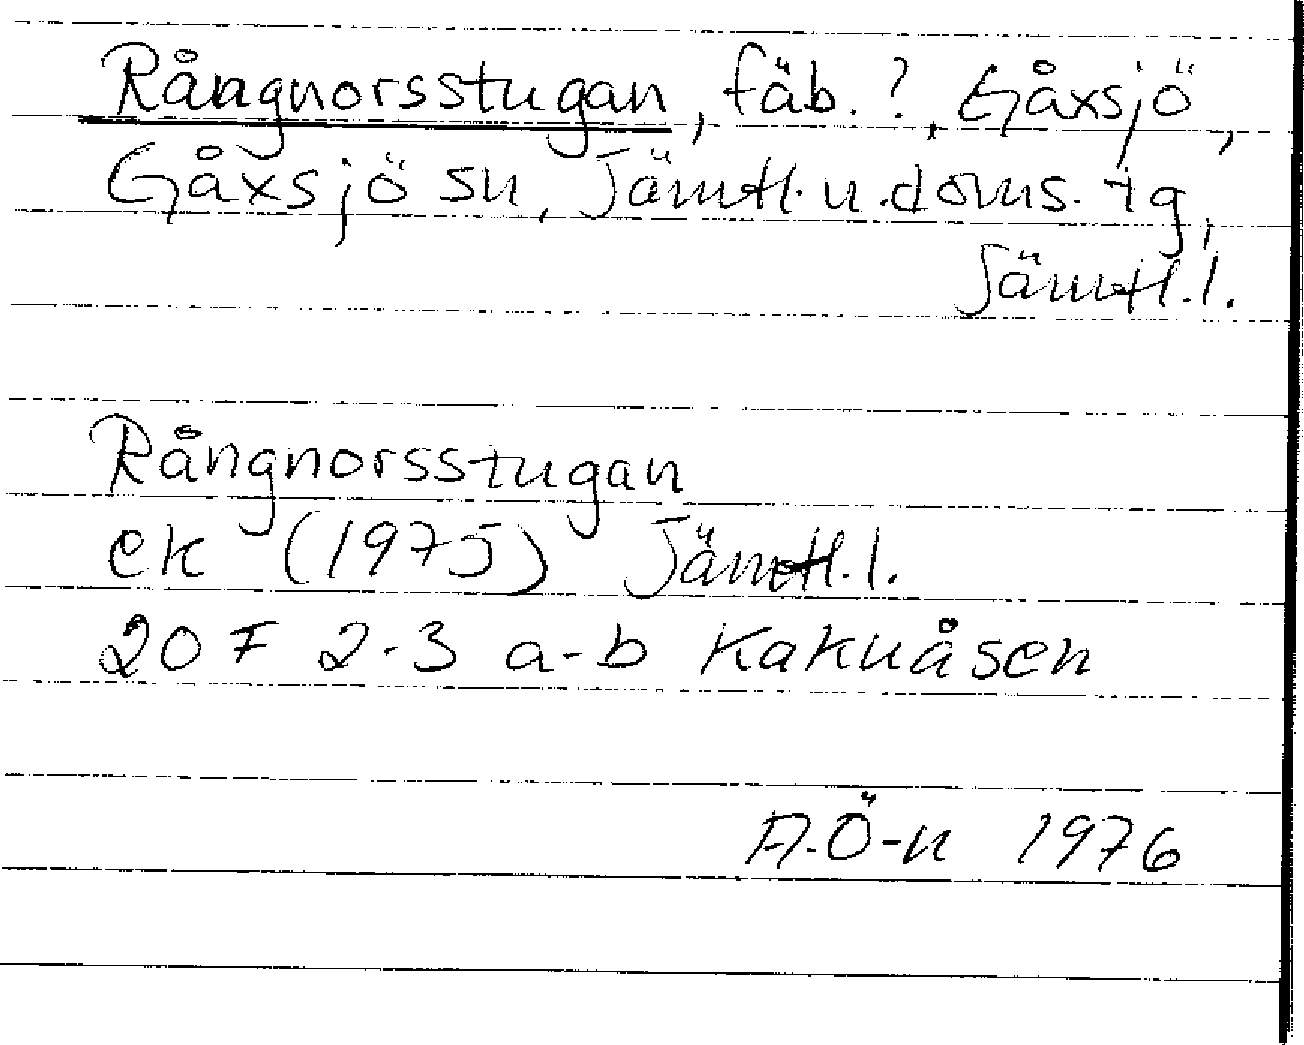 Rångnorsstugan, fäb.?, Gåxsjö,
Gåxsjö sn, Jämtl. n. doms. tg,
Jämtl. l.
Rångnorsstugan
ek (1975) Jämtl. l.
20 F 2-3 a-b Kakuåsen
A.Ö-n 1976